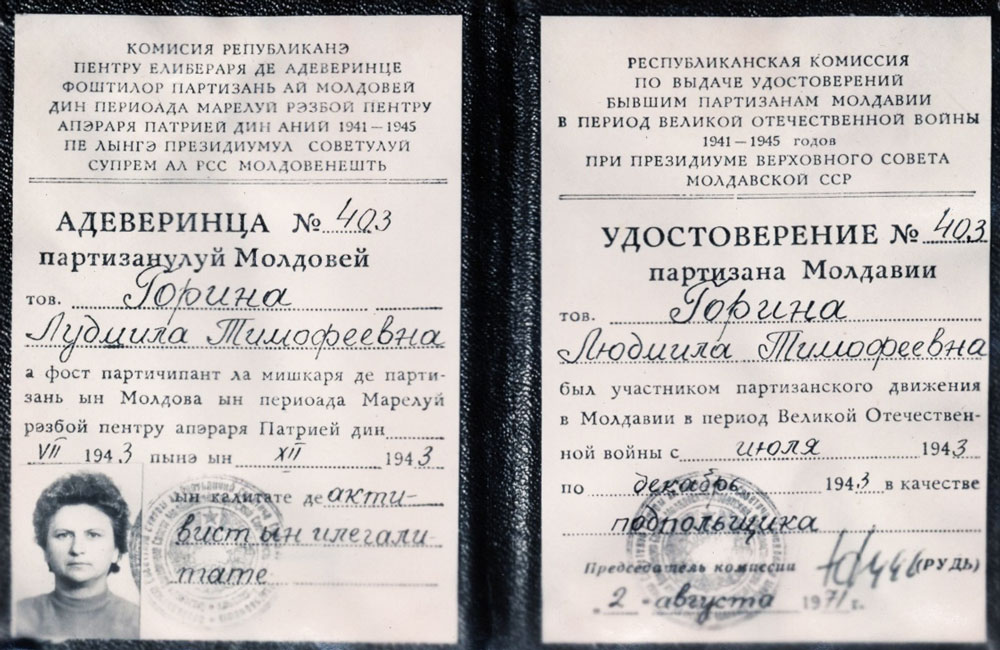 КОМИСИЯ РЕПУБЛИКАНЭ
ПЕНТРУ ЕЛИБЕРАРЯ ДЕ АДЕВЕРИНЦЕ
ФОШТИЛОР ПАРТИЗАНЬ АЙ МОЛДОВЕЙ
ДИН ПЕРИОАДА МАРЕЛУЙ РЭЗБОЙ ПЕНТРУ
АПЭРАРЯ ПАТРИЕЙ ДИН АНИЙ 1941—1945
ПЕ ЛЫНГЭ ПРЕЗИДИУМУЛ СОВЕТУЛУЙ
СУПРЕМ АЛ РСС МОЛДОВЕНЕШТЬ
АДЕВЕРИНЦА № 403
партизанулуй Молдовей
тов. Горина
Лудмила Тимофеевна
а фост партичипант ла мишкаря де парти-
зань ын Молдова ын периоада Марелуй
рэзбой пентру апэраря Патрией дин
VII 1943 пынэ ын XII 1943
ын калитате де акти-
вист ын илегали-
тате
РЕСПУБЛИКАНСКАЯ КОМИССИЯ
ПО ВЫДАЧЕ УДОСТОВЕРЕНИЙ
БЫВШИМ ПАРТИЗАНАМ МОЛДАВИИ
В ПЕРИОД ВЕЛИКОЙ ОТЕЧЕСТВЕННОЙ ВОЙНЫ
1941—1945 годов
ПРИ ПРЕЗИДИУМЕ ВЕРХОВНОГО СОВЕТА
МОЛДАВСКОЙ ССР
УДОСТОВЕРЕНИЕ № 403
партизана Молдавии
тов. Горина
Людмила Тимофеевна
был участником партизанского движения
в Молдавии в период Великой Отечествен-
ной войны с июля 1943
по декабрь 1943 в качестве
подпольщика
Председатель комиссии (РУДЬ)
"2" августа 1971 г.